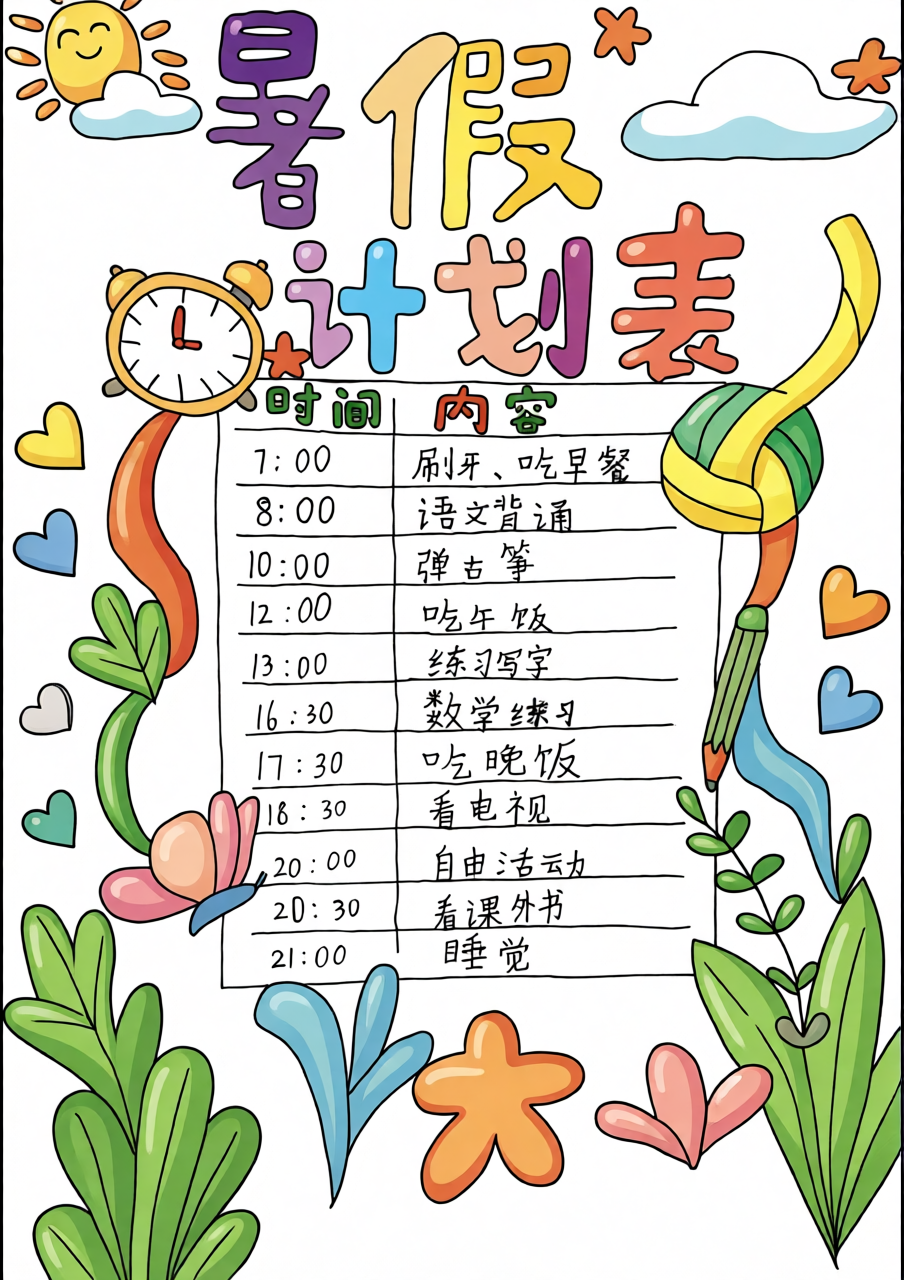 暑假
计划表
时间 内容
7:00 刷牙、吃早餐
8:00 语文背诵
10:00 弹古筝
12:00 吃午饭
13:00 练习写字
16:30 数学练习
17:30 吃晚饭
18:30 看电视
20:00 自由活动
20:30 看课外书
21:00 睡觉